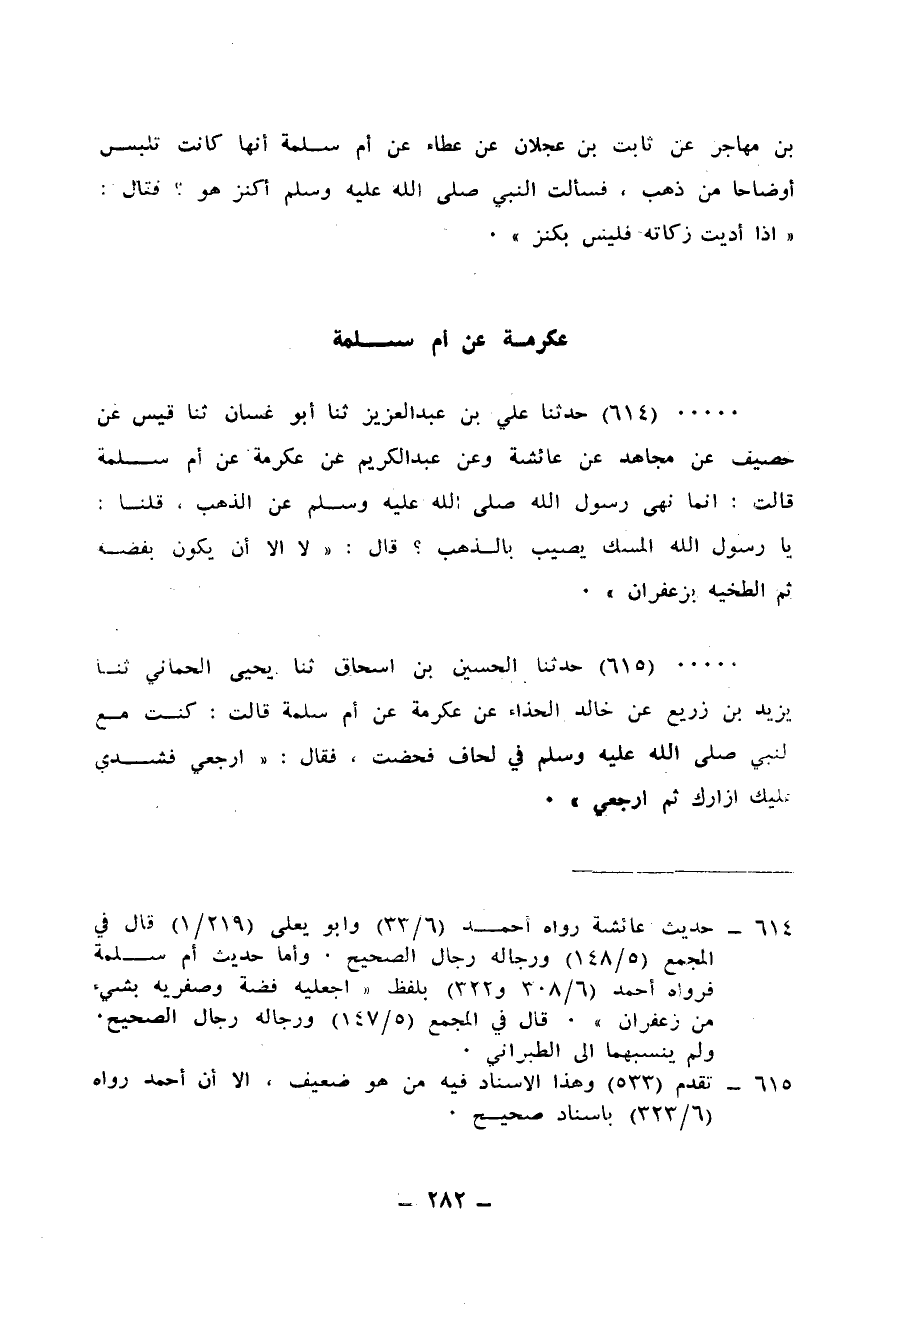 بن مهاجر عن ثابت بن عجلان عن عطاء عن أم سلمة أنها كانت تلبس
أوضاحا من ذهب ، فسألت النبي صلى الله عليه وسلم أكنز هو ؟ فقال :
« اذا أديت زكاته فليس بكنز » ٠
عكرمة عن أم سلمة
٠٠٠٠٠ (٦١٤) حدثنا علي بن عبدالعزيز ثنا أبو غسان ثنا قيس عن
خصيف عن مجاهد عن عائشة وعن عبدالكريم عن عكرمة عن أم سلمة
قالت : انما نهى رسول الله صلى الله عليه وسلم عن الذهب ، قلنا :
يا رسول الله المسك يصيب بالذهب ؟ قال : « لا الا أن يكون بفضة
ثم الطخيه بزعفران » ٠
٠٠٠٠٠ (٦١٥) حدثنا الحسين بن اسحاق ثنا يحيى الحماني ثنا
يزيد بن زريع عن خالد الحذاء عن عكرمة عن أم سلمة قالت : كنت مع
لنبي صلى الله عليه وسلم في لحاف فحضت ، فقال : « ارجعي فشدي
ـليك ازارك ثم ارجعي » ٠
٦١٤ ـ حديث عائشة رواه أحمد (٣٣/٦) وابو يعلى (١/٢١٩) قال في
المجمع (١٤٨/٥) ورجاله رجال الصحيح ٠ وأما حديث أم سلمة
فرواه أحمد (٣٠٨/٦ و٣٢٢) بلفظ « اجعليه فضة وصفريه بشيء
من زعفران » ٠ قال في المجمع (١٤٧/٥) ورجاله رجال الصحيح٠
ولم ينسبهما الى الطبراني ٠
٦١٥ ـ تقدم (٥٣٣) وهذا الاسناد فيه من هو ضعيف ، الا أن أحمد رواه
(٣٢٣/٦) باسناد صحيح ٠
ـ ٢٨٢ ـ